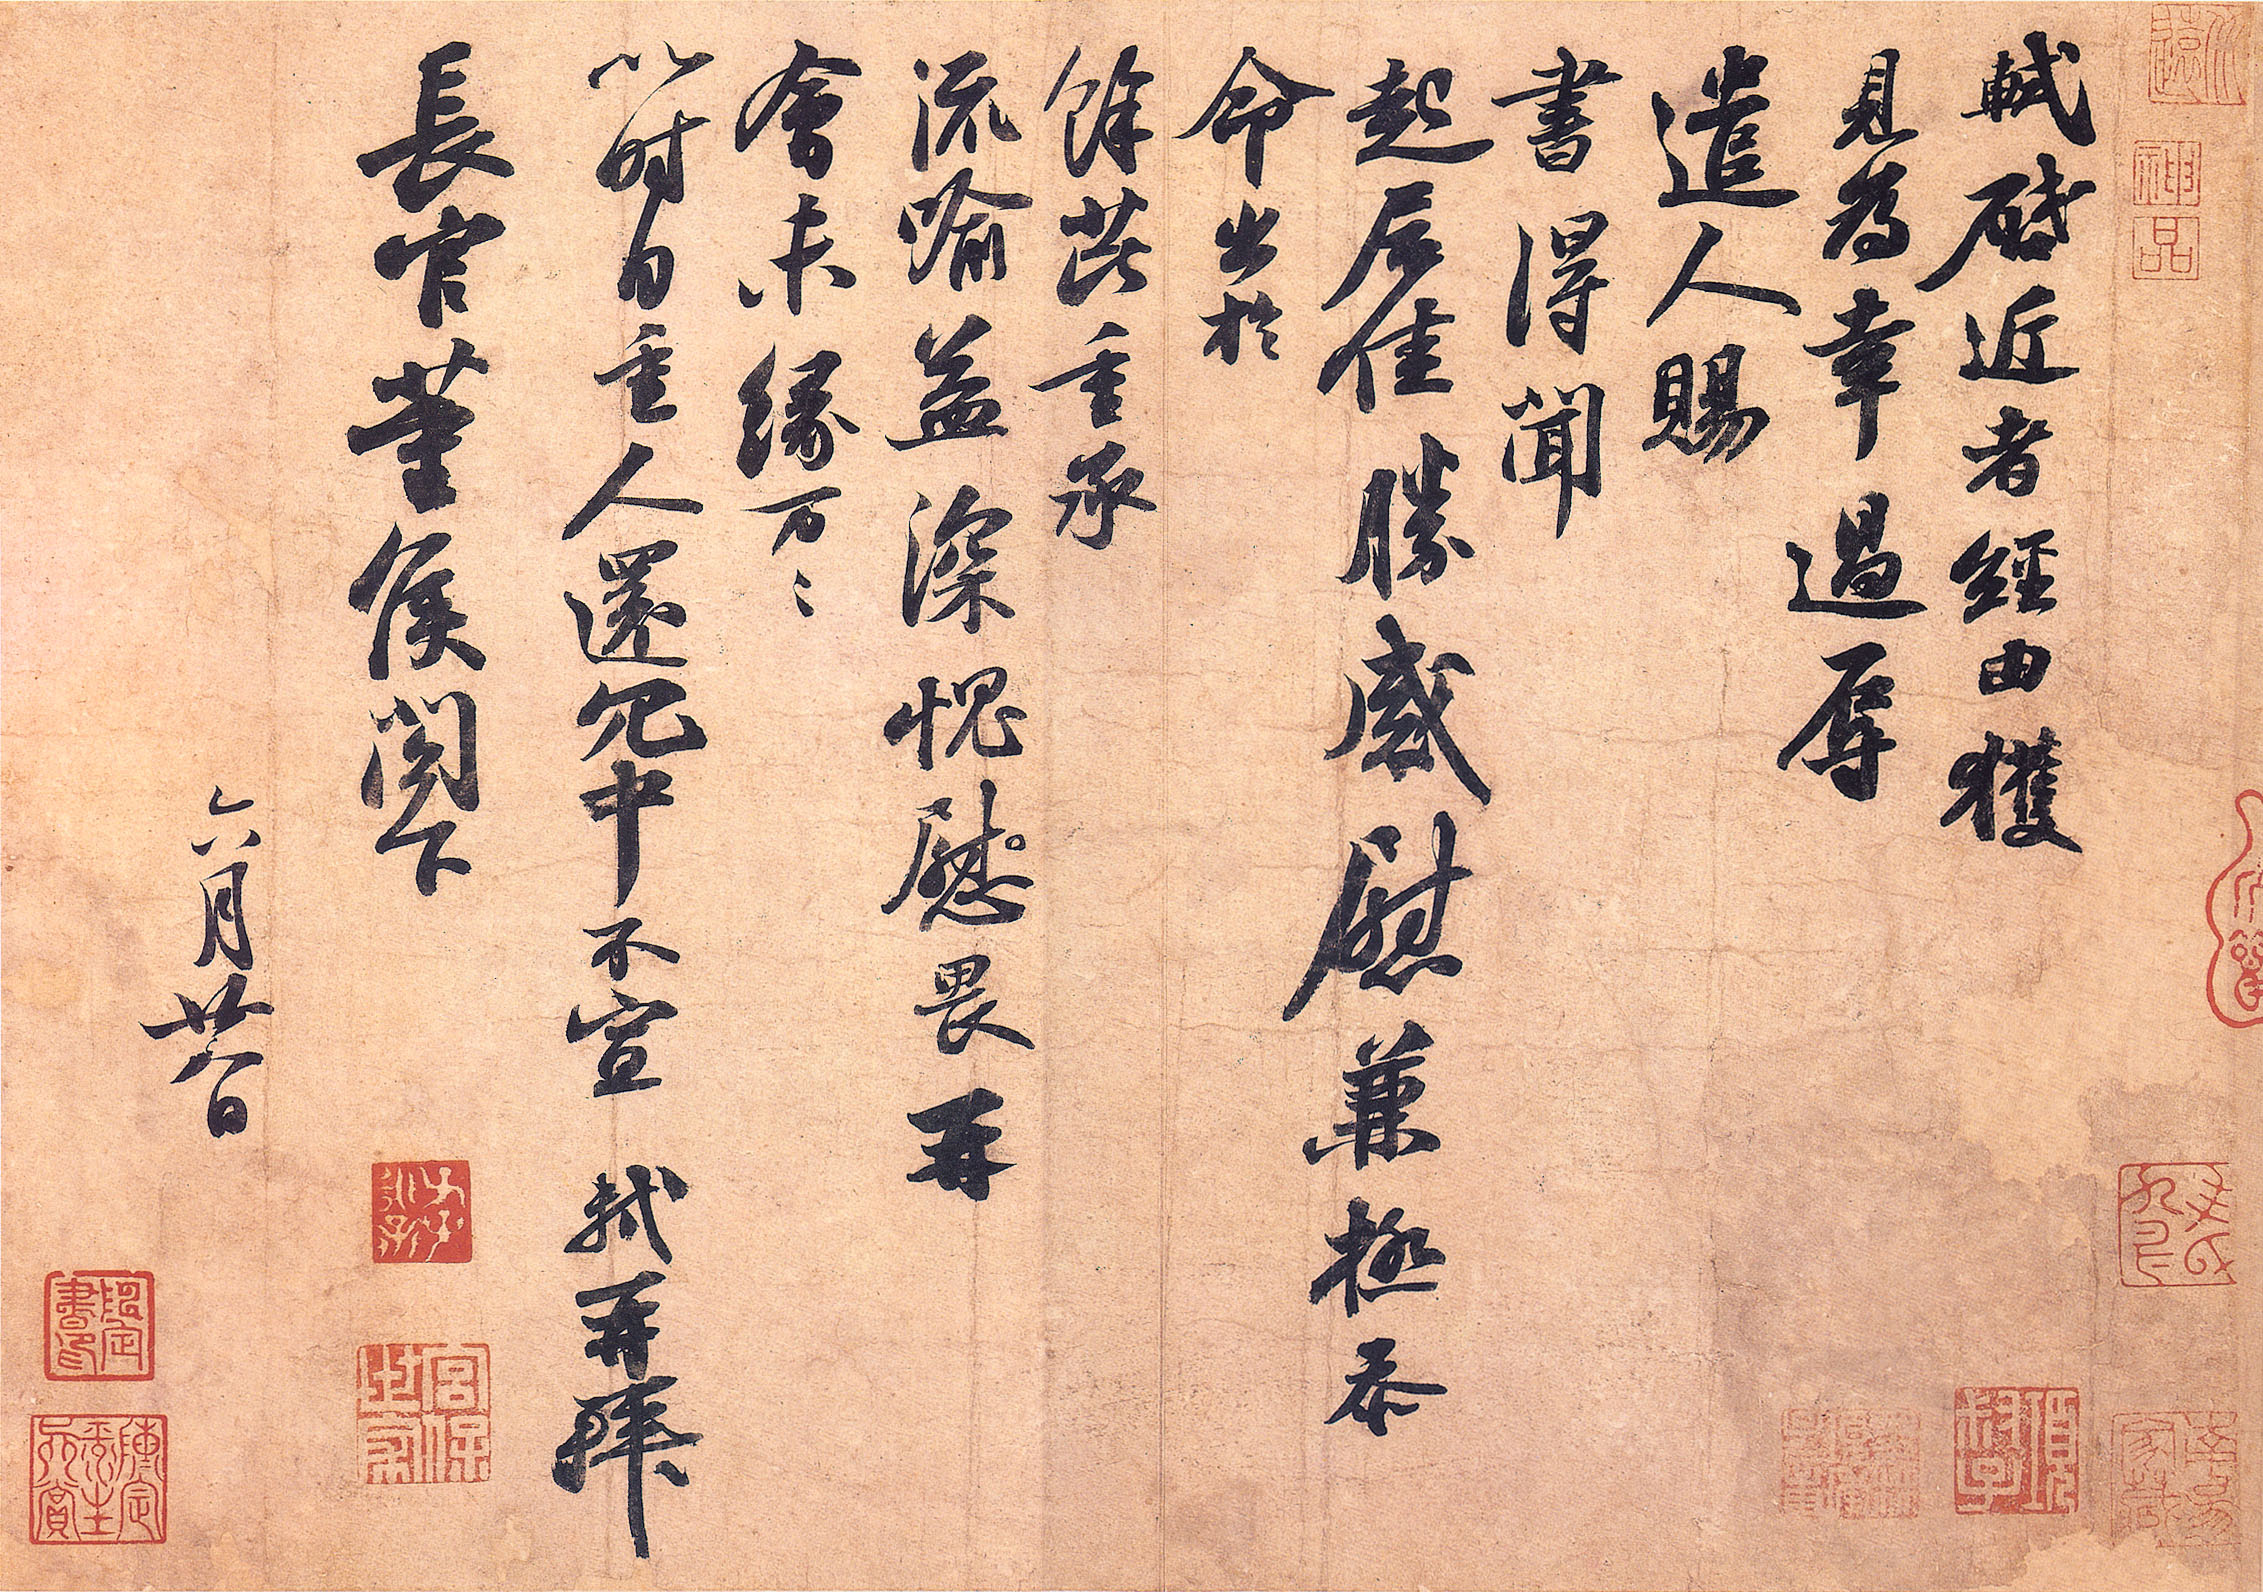 神品
軾啓近者經由獲
見為幸過辱
遣人賜
書得聞
起居佳勝感慰兼極忝
命出於
餘芘重承
流喻益深愧慰畏再
會未緣万〻
以时自重人還冗中不宣 軾再拜
長官董侯閤下
六月廿八日